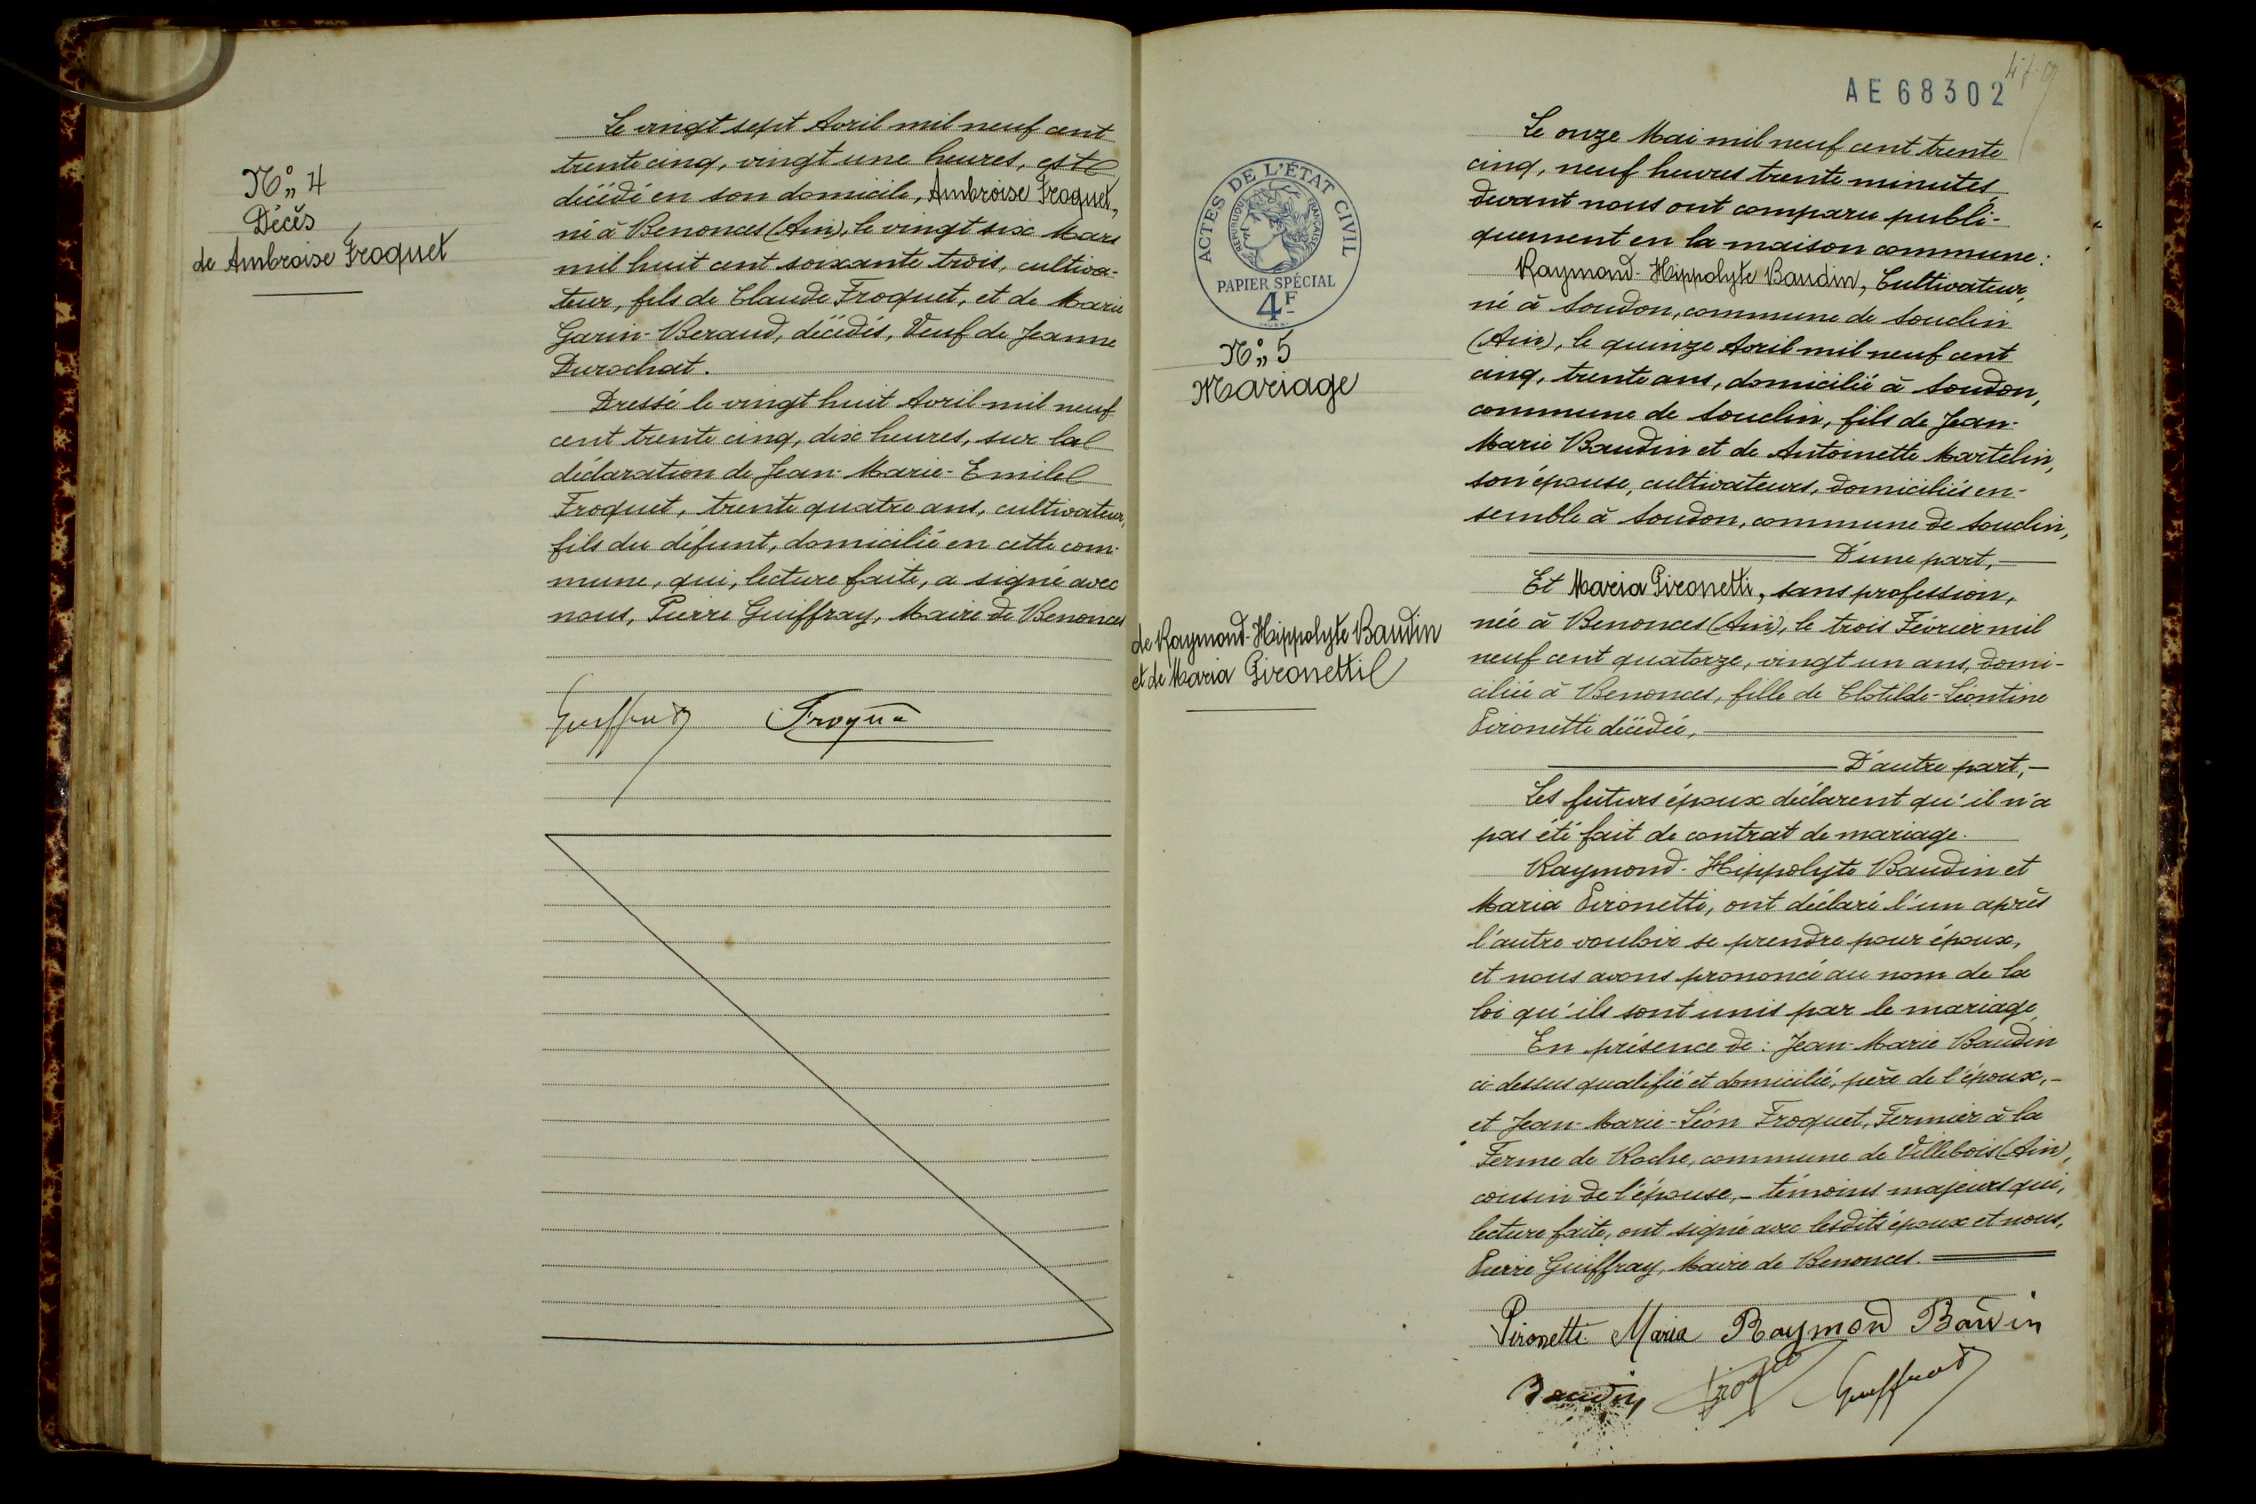 N° 4
Décès
de Ambroise Froquet
Le vingt sept Avril mil neuf cent
trente cinq, vingt une heures, est
décédé en son domicile, Ambroise Froquet,
né à Benonces (Ain), le vingt six Mars
mil huit cent soixante trois, cultiva-
teur, fils de Claude Froquet, et de Marie
Garin-Beraud, décédés, Veuf de Jeanne
Durochat.
Dressé le vingt huit Avril mil neuf
cent trente cinq, dix heures, sur la
déclaration de Jean-Marie-Emile
Froquet, trente quatre ans, cultivateur,
fils du défunt, domicilié en cette com-
mune, qui, lecture faite, a signé avec
nous, Pierre Guiffray, Maire de Benonces
Guiffray Froquet
AE 68302
ACTES DE L'ÉTAT CIVIL
RÉPUBLIQUE FRANÇAISE
PAPIER SPÉCIAL
4F
N° 5
Mariage
de Raymond-Hippolyte Baudin
et de Maria Pironetti
Le onze Mai mil neuf cent trente
cinq, neuf heures trente minutes
devant nous ont comparu publi-
quement en la maison commune:
Raymond-Hippolyte Baudin, Cultivateur,
né à Soudon, commune de Souclin
(Ain), le quinze Avril mil neuf cent
cinq, trente ans, domicilié à Soudon,
commune de Souclin, fils de Jean-
Marie Baudin et de Antoinette Martelin,
son épouse, cultivateurs, domiciliés en-
semble à Soudon, commune de Souclin,
D'une part,
Et Maria Pironetti, sans profession,
née à Benonces (Ain), le trois Février mil
neuf cent quatorze, vingt un ans, domi-
ciliée à Benonces, fille de Clotilde-Léontine
Pironetti décédée,
D'autre part,
Les futurs époux déclarent qu'il n'a
pas été fait de contrat de mariage.
Raymond-Hippolyte Baudin et
Maria Pironetti, ont déclaré l'un après
l'autre vouloir se prendre pour époux,
et nous avons prononcé au nom de la
loi qu'ils sont unis par le mariage
En présence de: Jean-Marie Baudin
ci-dessus qualifié et domicilié, père de l'époux,-
et Jean-Marie-Léon Froquet, Fermier à la
Ferme de Roche, commune de Villebois (Ain),
cousin de l'épouse,- témoins majeurs qui,
lecture faite, ont signé avec lesdits époux et nous,
Pierre Guiffray, Maire de Benonces.
Pironetti Maria Raymond Baudin
Baudin Froquet Guiffray